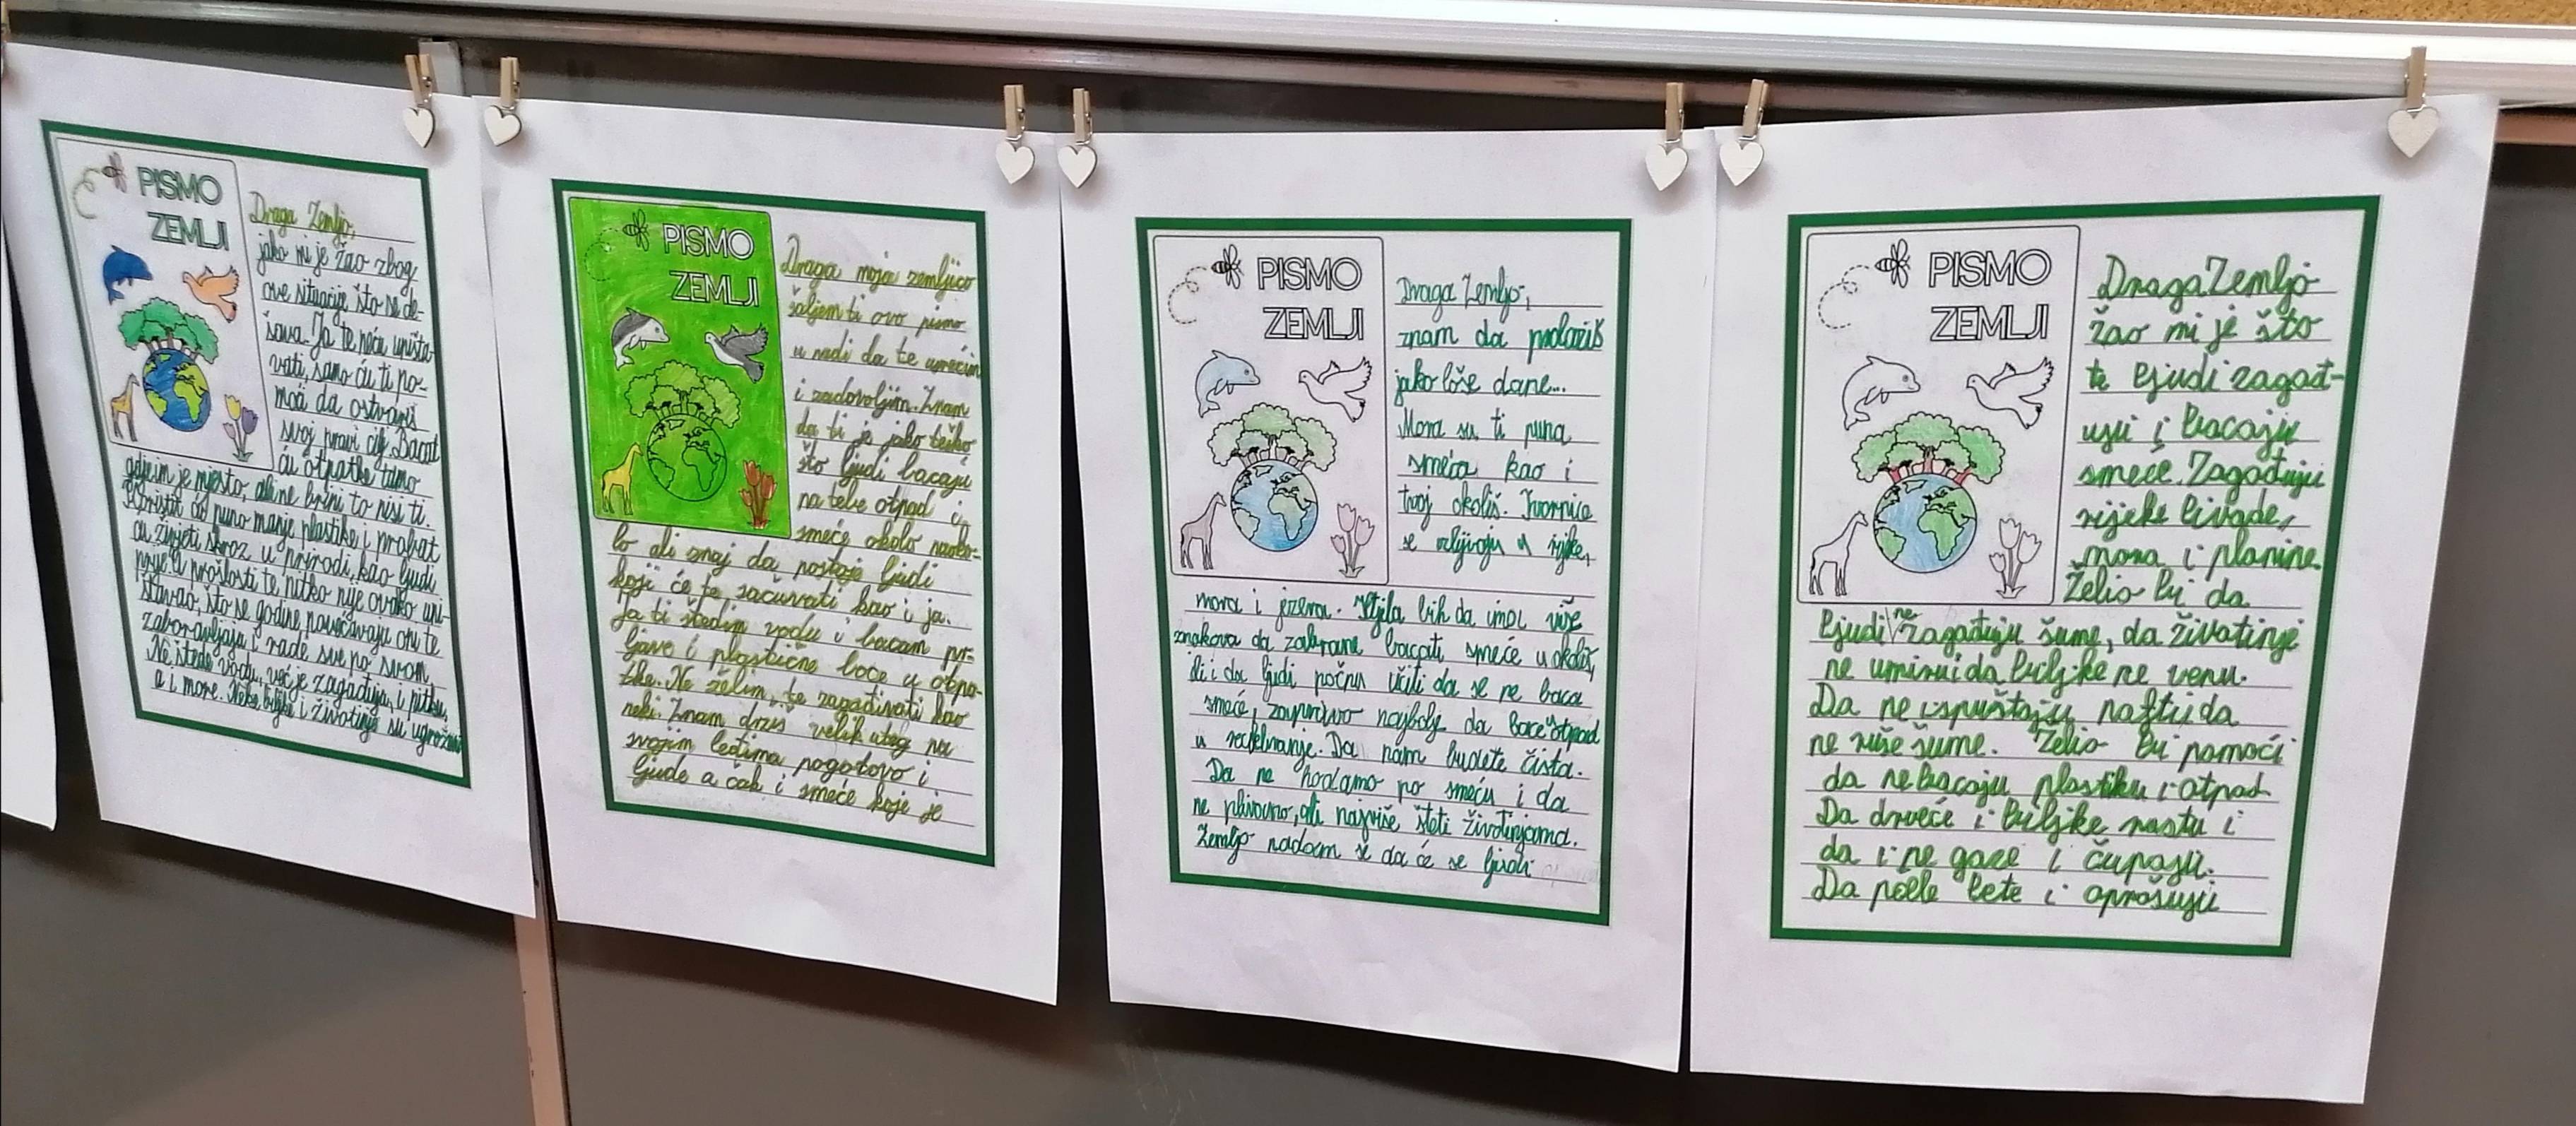 PISMO
ZEMLJI
Draga Zemljo,
jako mi je žao zbog
ove situacije što se de-
šava. Ja te neću uništa-
vati, samo ću ti po-
moći da ostvariš
svoj pravi cilj. Bacat
ću otpatke tamo
gdje im je mjesto, ali ne brini to nisi ti.
Koristit ću puno manje plastike i probat
ću živjeti skroz u prirodi, kao ljudi
prije. U prošlosti te nitko nije ovako uni-
štavao, što se godine povećavaju oni te
zaboravljaju i rade sve po svom.
Ne štede vodu, već je zagađuju, i pitku,
a i more. Neke biljke i životinje su ugrožene
PISMO
ZEMLJI
Draga moja zemljico
šaljem ti ovo pismo
u nadi da te usrećim
i zadovoljim. Znam
da ti je jako teško
što ljudi bacaju
na tebe otpad i
smeće okolo naoko-
lo ali znaj da postoje ljudi
koji će te sačuvati kao i ja.
Ja ti štedim vodu i bacam pr-
ljave i plastične boce u otpa-
tke. Ne želim te zagađivati kao
neki. Znam držiš velik uteg na
svojim leđima pogotovo i
ljude a čak i smeće koje je
PISMO
ZEMLJI
Draga Zemljo,
znam da prolaziš
jako loše dane...
Mora su ti puna
smeća kao i
tvoj okoliš. Tvornice
se izlijevaju u rijeke,
mora i jezera. Htjela bih da ima više
znakova da zabrane bacati smeće u okoliš,
ili i da ljudi počnu učiti da se ne baca
smeće, zapravo najbolje da bace otpad
u recikliranje. Da nam budete čista.
Da ne hodamo po smeću i da
ne plivamo, ali najviše šteti životinjama.
Zemljo nadam se da će se ljudi
PISMO
ZEMLJI
Draga Zemljo
žao mi je što
te ljudi zagađ-
uju i bacaju
smeće. Zagađuju
rijeke livade,
mora i planine.
Želio bi da
ljudi ne zagađuju šume, da životinje
ne umiru i da biljke ne venu.
Da ne ispuštaju naftu i da
ne ruše šume. Želio bi pomoći
da ne bacaju plastiku i otpad
Da drveće i biljke rastu i
da i ne gaze i čupaju.
Da pčele lete i oprašuju